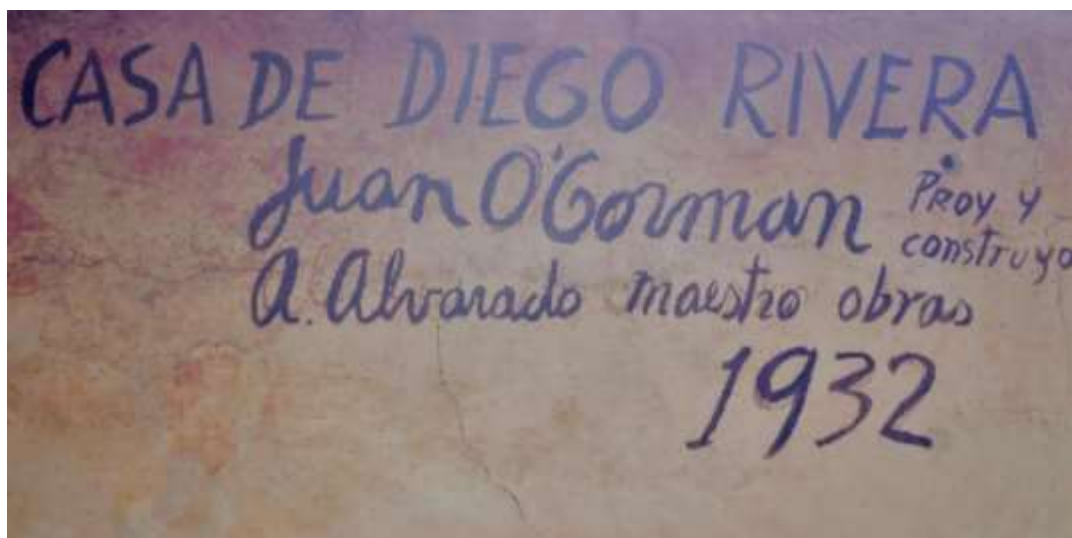 CASA DE DIEGO RIVERA
Juan O'Gorman Proy y
construyo
A. Alvarado maestro obras
1932